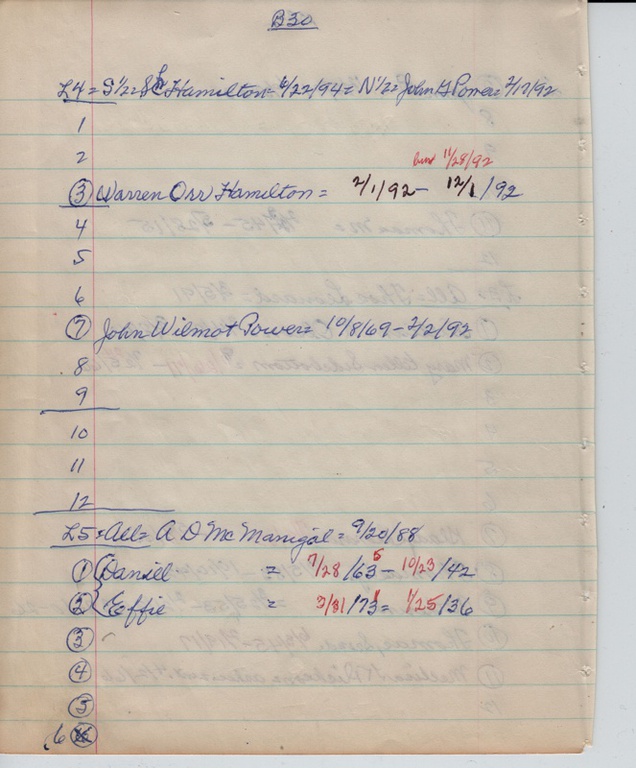 B30
L4 = S 1/2 = S E Hamilton = 6/22/94 = N 1/2 = John G Power = 2/17/92
1
2
bur 11/28/92
3 Warren Orr Hamilton = 2/1/92 - 12/1/92
4
5
6
7 John Wilmot Power = 10/8/69 - 2/2/92
8
9
10
11
12
L5 = All = A D McManigal = 9/20/88
1 Daniel = 7/28/63 5 - 10/23/42
2 Effie = 3/31/73 = 1/25/36
3
4
5
6